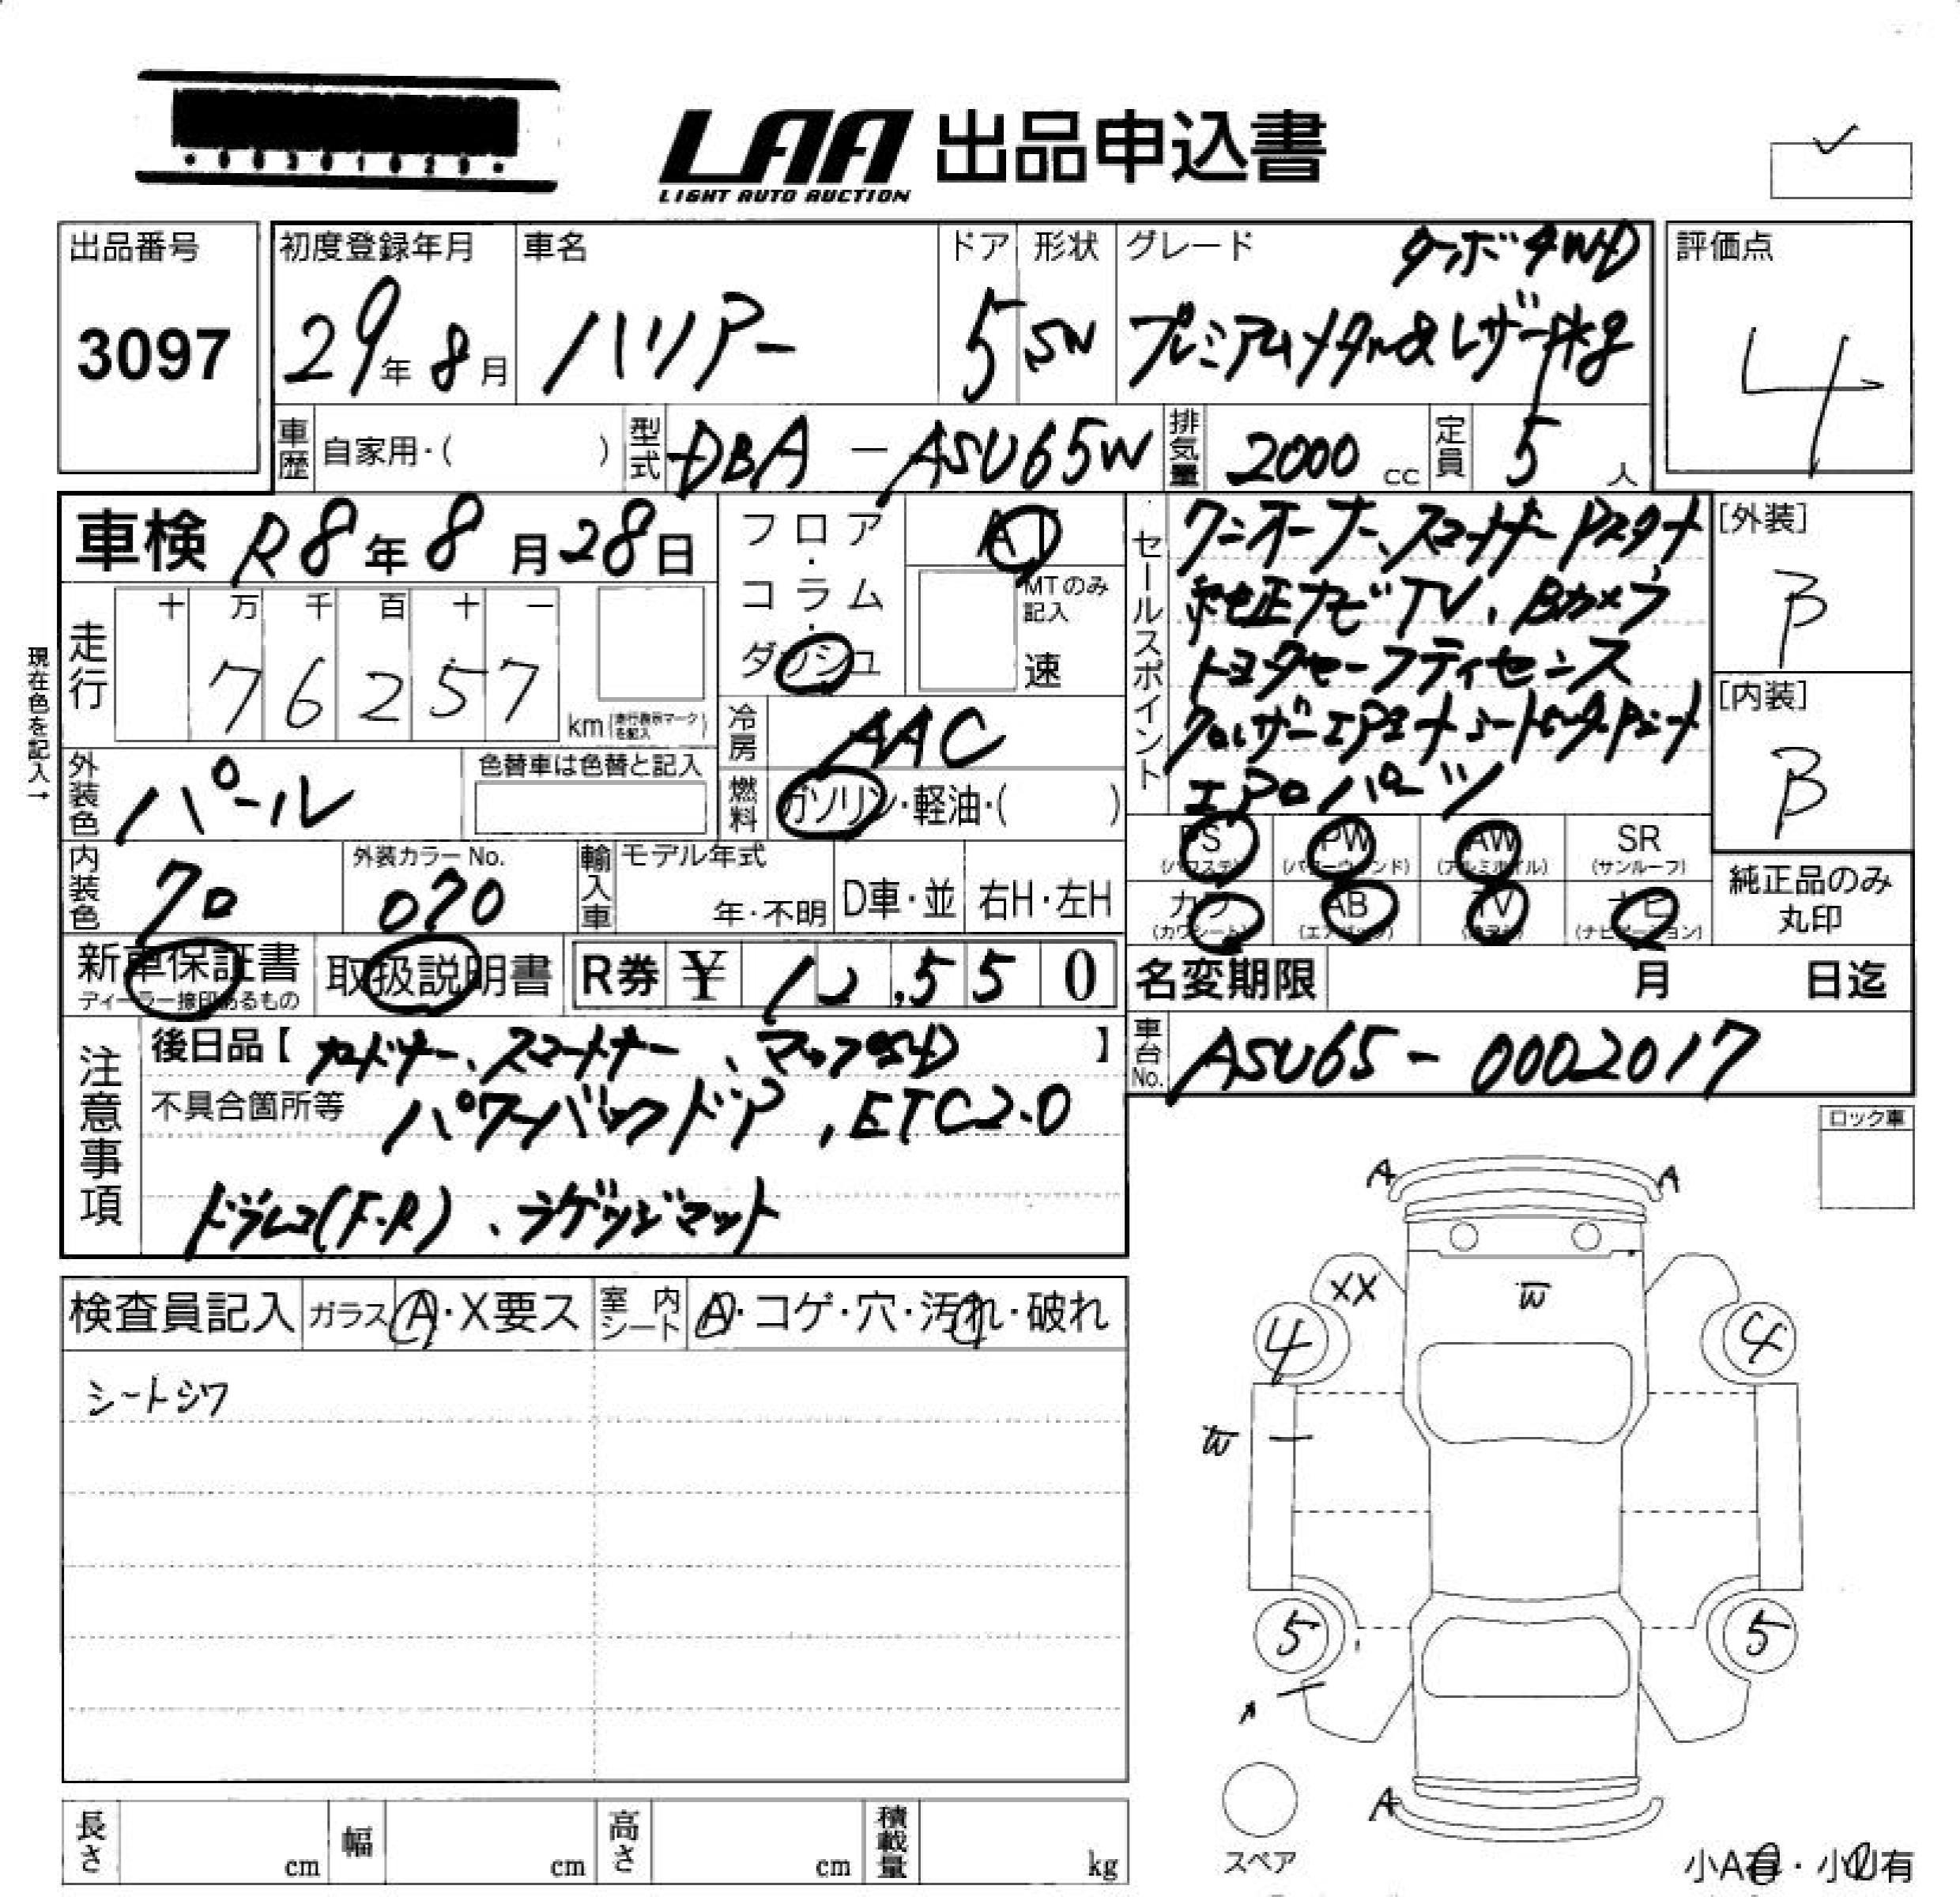 LAA 出品申込書
LIGHT AUTO AUCTION
出品番号
3097
初度登録年月
29年8月
車名
ハリアー
ドア
5
形状
SW
グレード
ターボ4WD
プレミアムメタル&レザーPKg
評価点
4
車歴 自家用・( )
型式 DBA-ASU65W
排気量 2000 cc
定員 5 人
車検 R8年8月28日
フロア・コラム・ダッシュ
AT
MTのみ記入
速
セールスポイント
ワンオーナー、スマートキーPスタート
純正ナビTV、Bカメラ
トヨタセーフティセンス
エアロパーツ
[外装]
B
[内装]
B
現在色を記入→
走行
十 万 千 百 十 一
7 6 2 5 7
km(走行表示マークを記入)
冷房 AAC
燃料 ガソリン・軽油・( )
外装色 パール
色替車は色替と記入
内装色 クロ
外装カラーNo.
070
輸入車
モデル年式
年・不明
D車・並
右H・左H
PS (パワステ)
PW (パワーウィンド)
AW (アルミホイル)
SR (サンルーフ)
カワ (カワシート)
AB (エアバッグ)
TV (テレビ)
ナビ (ナビゲーション)
純正品のみ丸印
新車保証書
ディーラー捺印あるもの
取扱説明書
R券 ¥ 12,550
名変期限 月 日迄
注意事項
後日品【カードキー、スマートキー、マップSD】
不具合箇所等 パワーバックドア、ETC2.0
ドラレコ(F・R)、ラゲッジマット
車台No. ASU65-0002017
ロック車
検査員記入
ガラス A・X要ス
室内シート A・コゲ・穴・汚れ・破れ
シートシワ
A A
XX W
4 4
W
5 5
A
A
スペア
小A有・小U有
長さ cm
幅 cm
高さ cm
積載量 kg